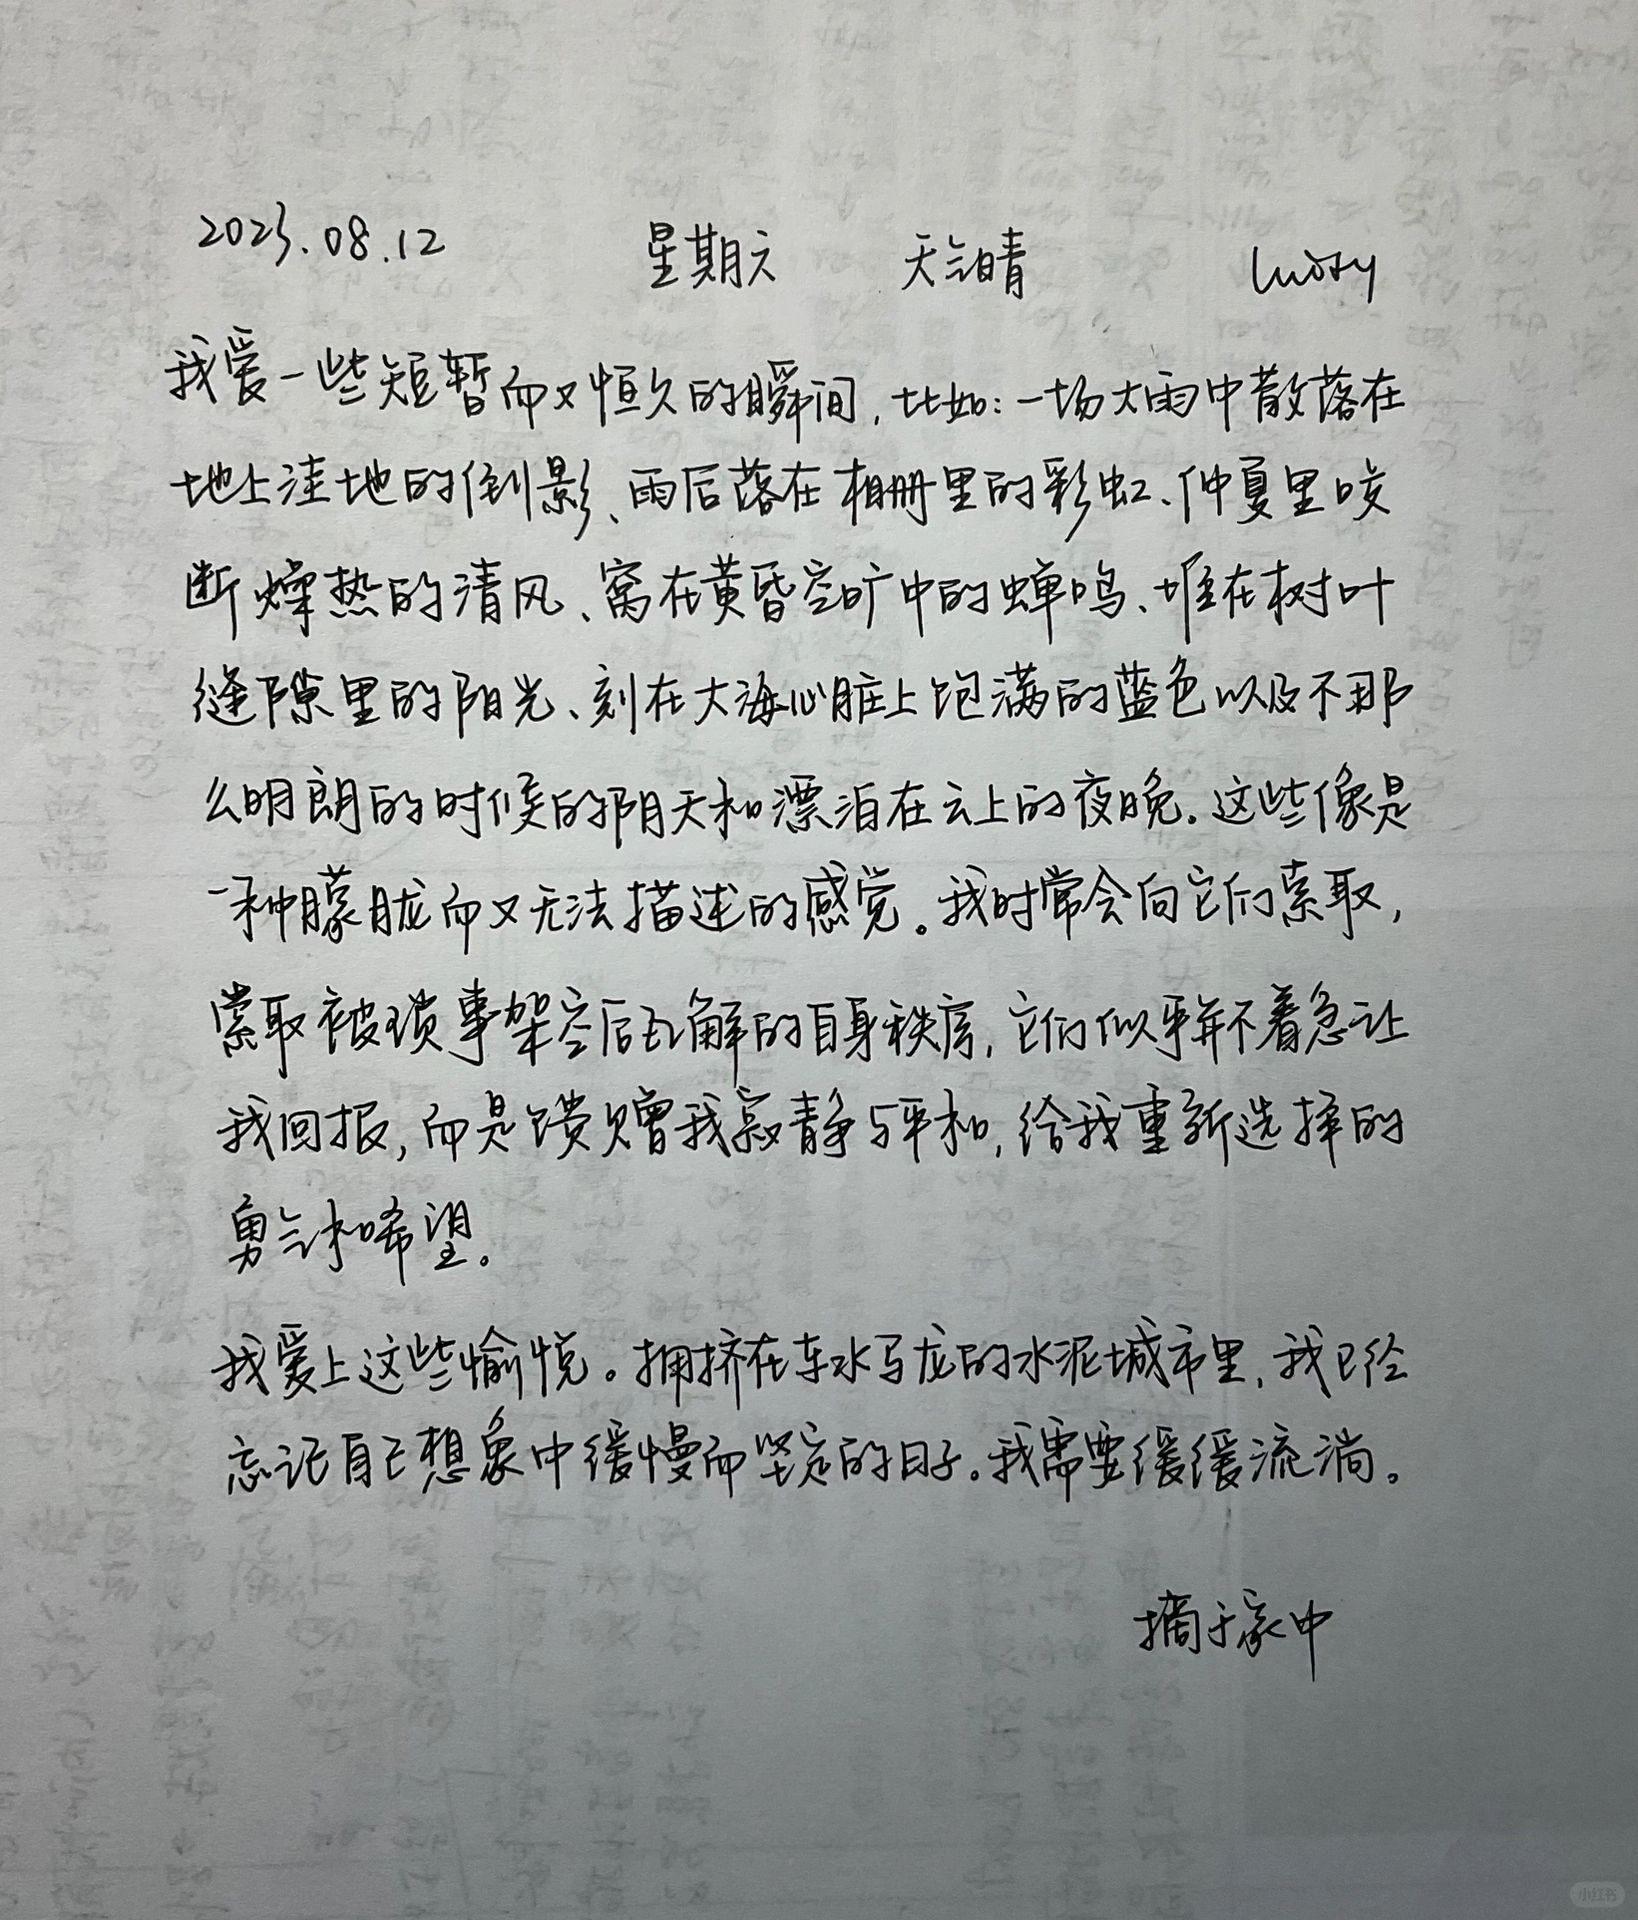 2023.08.12 星期六 天气晴
我爱一些短暂而又恒久的瞬间，比如：一场大雨中散落在
地上洼地的倒影、雨后落在相册里的彩虹、仲夏里咬
断燥热的清风、窝在黄昏空旷中的蝉鸣、堆在树叶
缝隙里的阳光、刻在大海心脏上饱满的蓝色以及不那
么明朗的时候的阴天和漂泊在云上的夜晚。这些像是
一种朦胧而又无法描述的感觉。我时常会向它们索取，
索取被琐事架空后瓦解的自身秩序，它们似乎并不着急让
我回报，而是馈赠我寂静与平和，给我重新选择的
勇气和希望。
我爱上这些愉悦。拥挤在车水马龙的水泥城市里，我已经
忘记自己想象中缓慢而坚定的日子。我需要缓缓流淌。
摘于家中
小红书